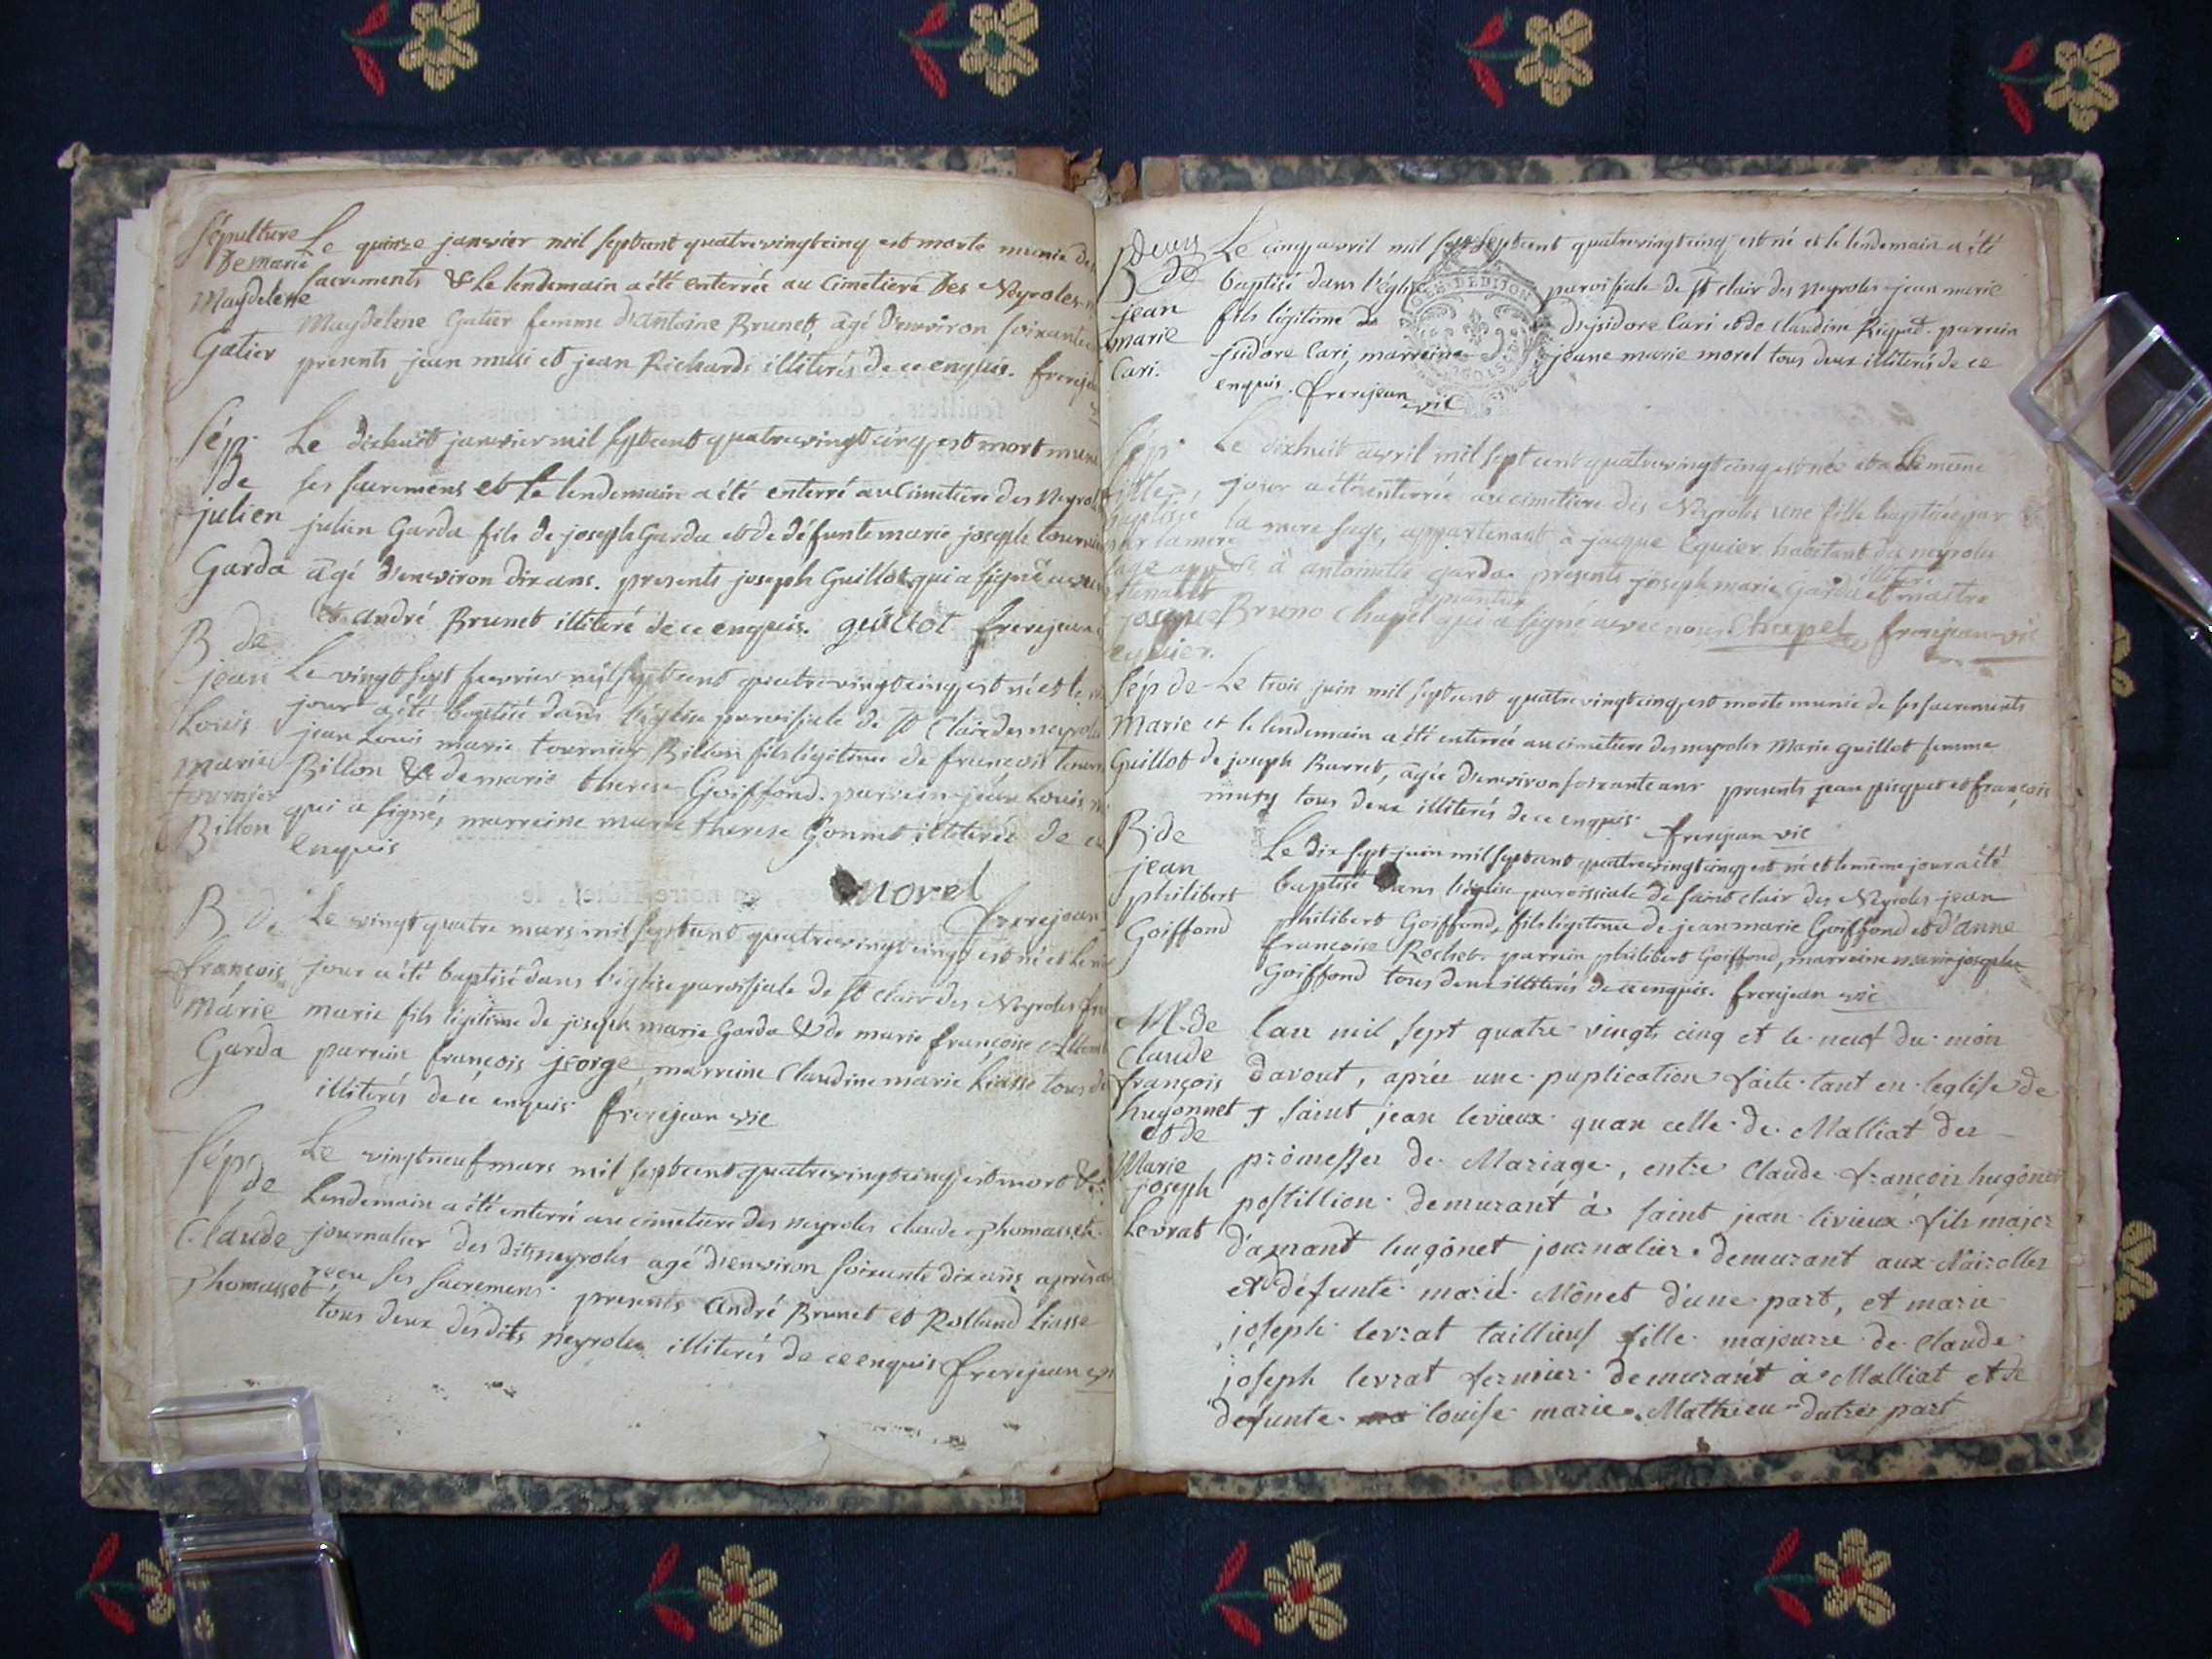 Sépulture
De marie
Magdelene
Gatier
Le quinze janvier mil septcent quatrevingtcinq est morte munie des
sacrements & le lendemain a été enterrée au Cimetiere Des Neyroles
Magdelene Gatier femme d'antoine Brunet, agé D'environ soixante
presents jean musi et jean Richard illiterés de ce enquis. frerejean
Sép.
De
julien
Garda
Le dixhuit janvier mil septcent quatrevingtcinq est mort muni
ses sacremens et le lendemain a été enterré au Cimetiere des Neyroles
julien Garda fils de joseph Garda et de défunte marie joseph tournier
agé d'environ dix ans. presents joseph Guillot qui a signé avec
et andré Brunet illiteré de ce enquis. guillot frerejean
B de
jean
Louis
marie
tournier
Billon
Le vingt sept fevrier mil septcent quatrevingtcinq est né et le
jour a été baptisé dans l'église paroissiale de St Clair des neyroles
jean Louis marie tournier Billon fils légitime de francois tournier
Billon & de marie therese Goiffond. parrein jean Louis
qui a signé, marreine marie therese Gonnet illiterée de ce
enquis
Morel
frerejean
B de
françois
marie
Garda
Le vingt quatre mars mil septcent quatrevingtcinq est né et le
jour a été baptisé dans l'église paroissiale de St clair des Neyroles
marie fils légitime de joseph marie Garda & de marie françoise
parrein françois jeorge, marreine Claudine marie Liasse tous
illiterés de ce enquis. frerejean vic
Sép
de
Claude
Phomasset
Le vingtneuf mars mil septcent quatrevingtcinq est mort &
lendemain a été enterré au cimetiere des neyroles claude Phomasset
journalier des dits neyroles agé d'environ soixante dix ans après
reçu ses sacremens. presents André Brunet et Rolland Liasse
tous deux desdits neyroles illiterés de ce enquis frerejean
B
de
jean
marie
Cari.
Le cinq avril mil septcent quatrevingtcinq est né et le lendemain a été
baptisé dans l'église paroissiale de St clair des neyroles jean marie
fils légitime d'isidore Cari et de claudine parrein
isidore Cari, marreine jeanne marie morel tous deux illiterés de ce
enquis. frerejean vic
DE DIJON
Sép.
fille
baptisée
par la mere
sage
jacque
equier.
Le dixhuit avril mil septcent quatrevingtcinq est née et a le même
jour a été enterrée au cimetiere des Neyroles une fille baptisée par
la mere sage, appartenant à jacque Equier habitant des neyroles
& à antoinette garda. presents joseph marie Garda illiteré et maitre
Bruno Chapel qui a signé avec nous. Chapel frerejean vic
Sép de
Marie
Guillot
Le trois juin mil septcent quatrevingtcinq est morte munie de ses sacrements
et le lendemain a été enterrée au cimetiere des neyroles Marie guillot femme
de joseph Barret, agée d'environ soixante ans presents jean piquet et françois
musy tous deux illiterés de ce enquis. frerejean vic
B. de
jean
philibert
Goiffond
Le dix sept juin mil septcent quatrevingtcinq est né et le même jour a été
baptisé dans l'église paroissiale de saint clair des Neyroles jean
philibert Goiffond, fils légitime de jean marie Goiffond et d'anne
françoise Rochet. parrein philibert Goiffond, marreine marie josephe
Goiffond tous deux illiterés de ce enquis. frerejean vic
M. de
Claude
françois
hugonnet
et de
Marie
joseph
Levrat
lan mil sept quatre vingts cinq et le neuf du mois
davout, aprée une puplication faite tant en leglise de
saint jean levieux quan celle de Malliat des
promesses de Mariage, entre Claude françois hugônet
postillion demurant à saint jean livieux fils majer
d'amant hugônet journalier demurant aux Nairolles
et défunte marie Mônet d'une part, et marie
joseph levrat taillieus fille majeurre de Claude
joseph levrat fermier demurant à Malliat et de
defunte louise marie Mathieu dutre part